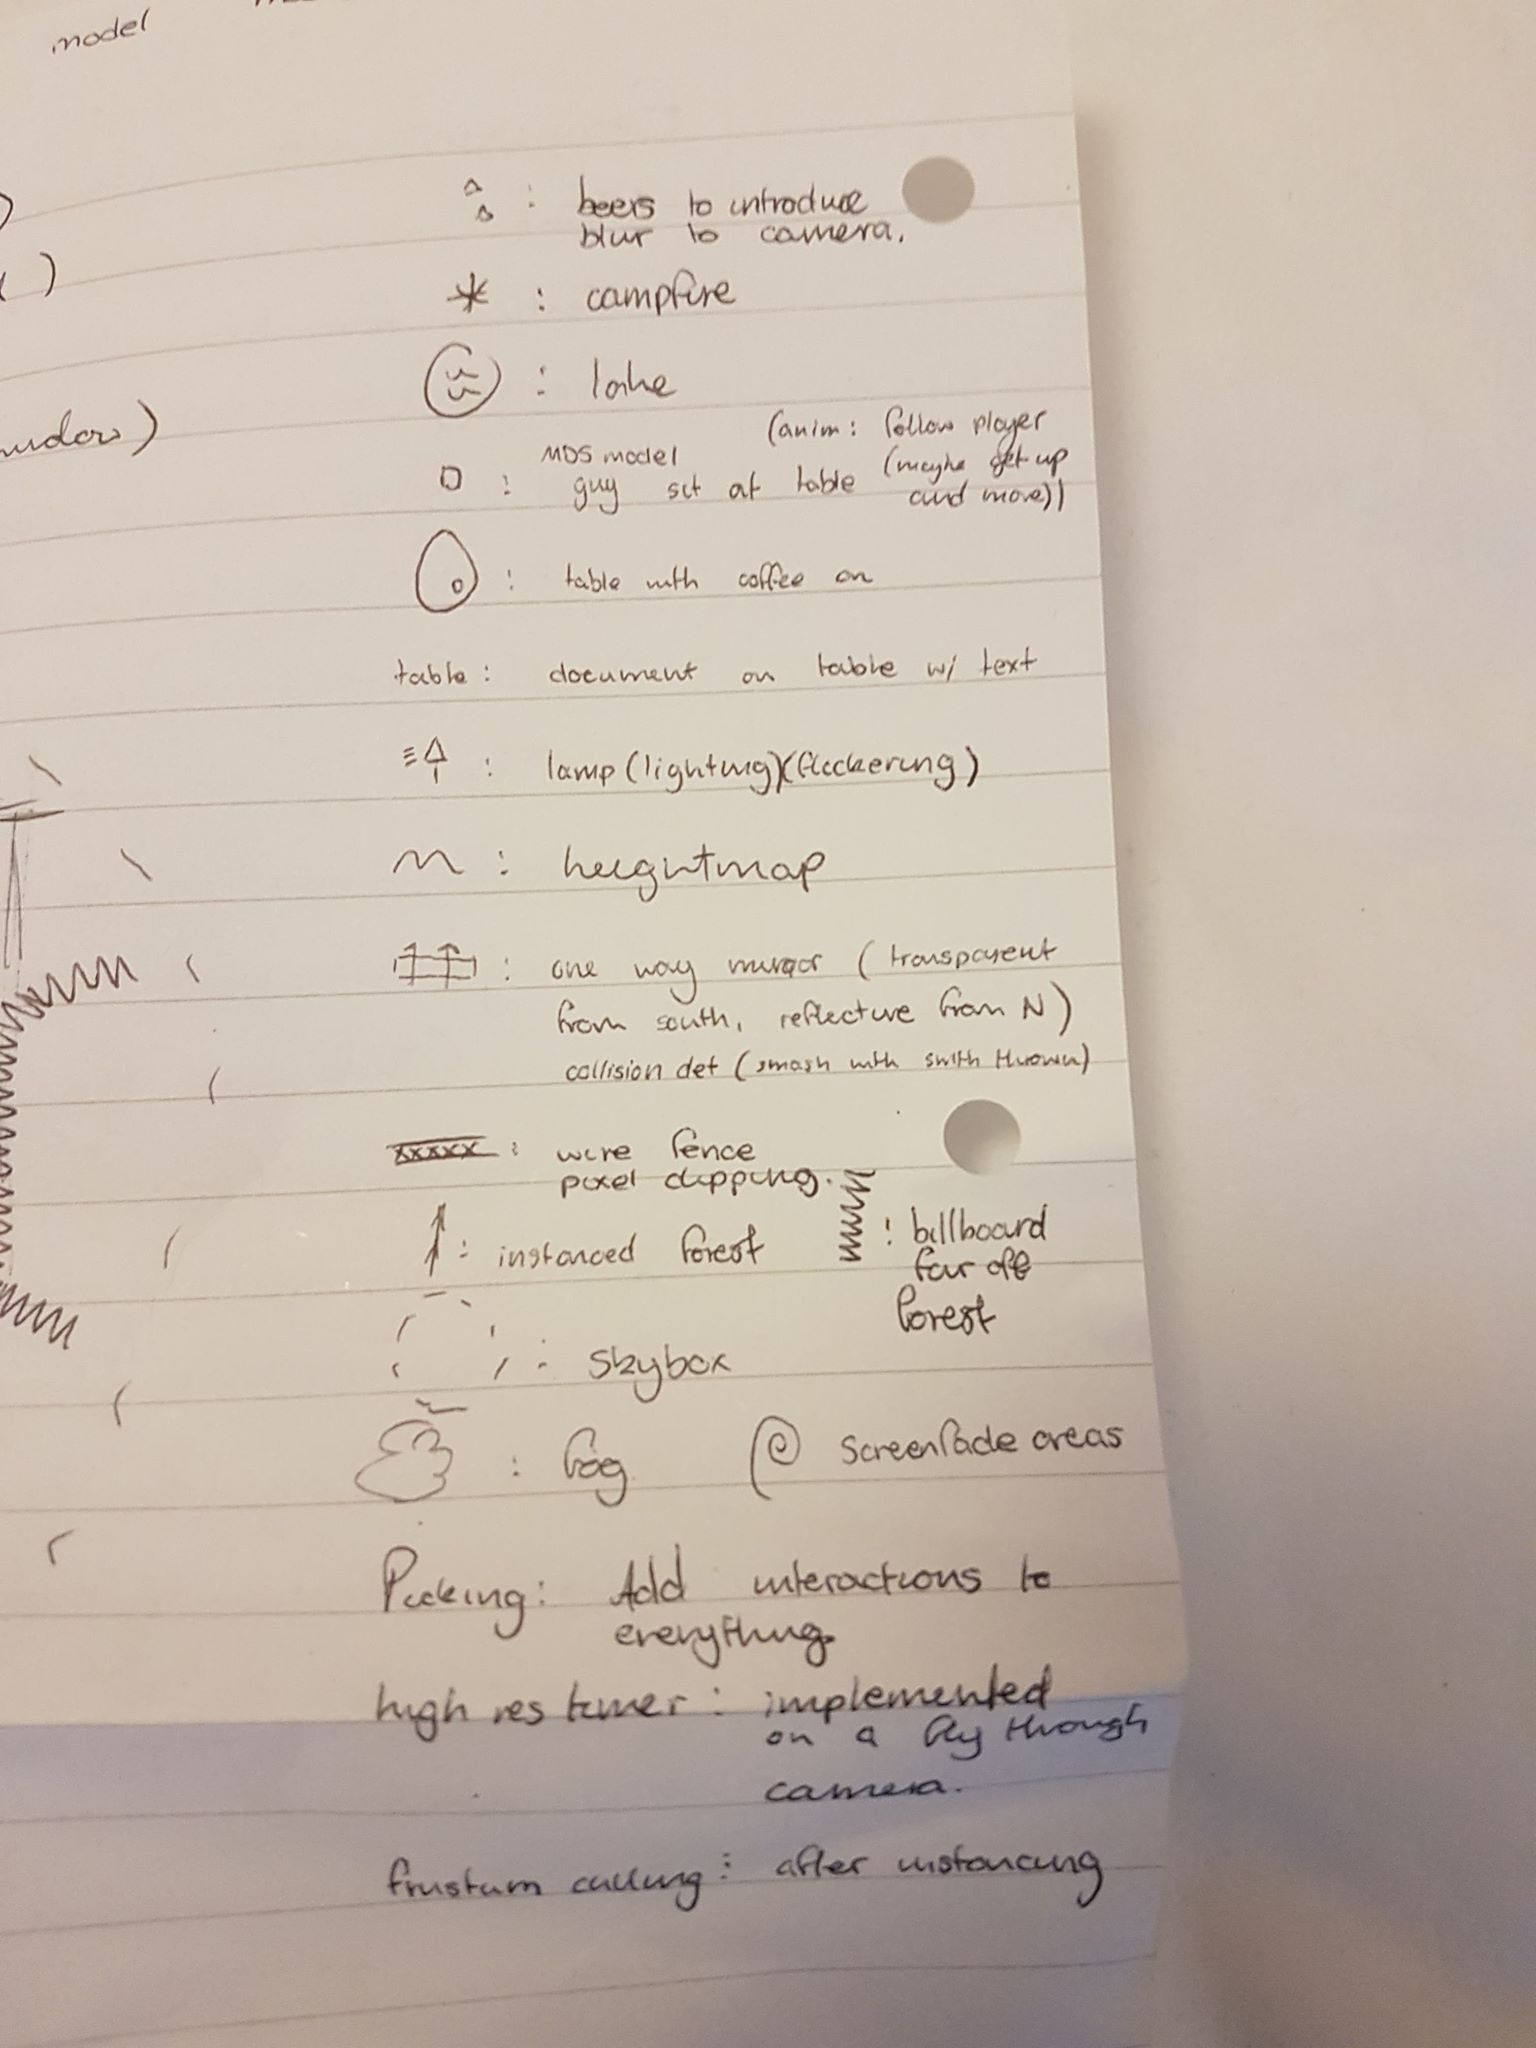 model
: beers to introduce
blur to camera.
: campfire
: lake
(anim: follow player
MD5 model
: guy sat at table (maybe get up
and move))
: table with coffee on
table: document on table w/ text
: lamp (lighting)(flickering)
: heightmap
: one way mirror (transparent
from south, reflective from N)
collision det (smash with thrown)
xxxxx : wire fence
pixel clipping.
: instanced forest
: billboard
far off
forest
: skybox
: fog
screenfade areas
Picking: Add interactions to
everything
high res timer: implemented
on a fly through
camera.
frustum culling: after instancing